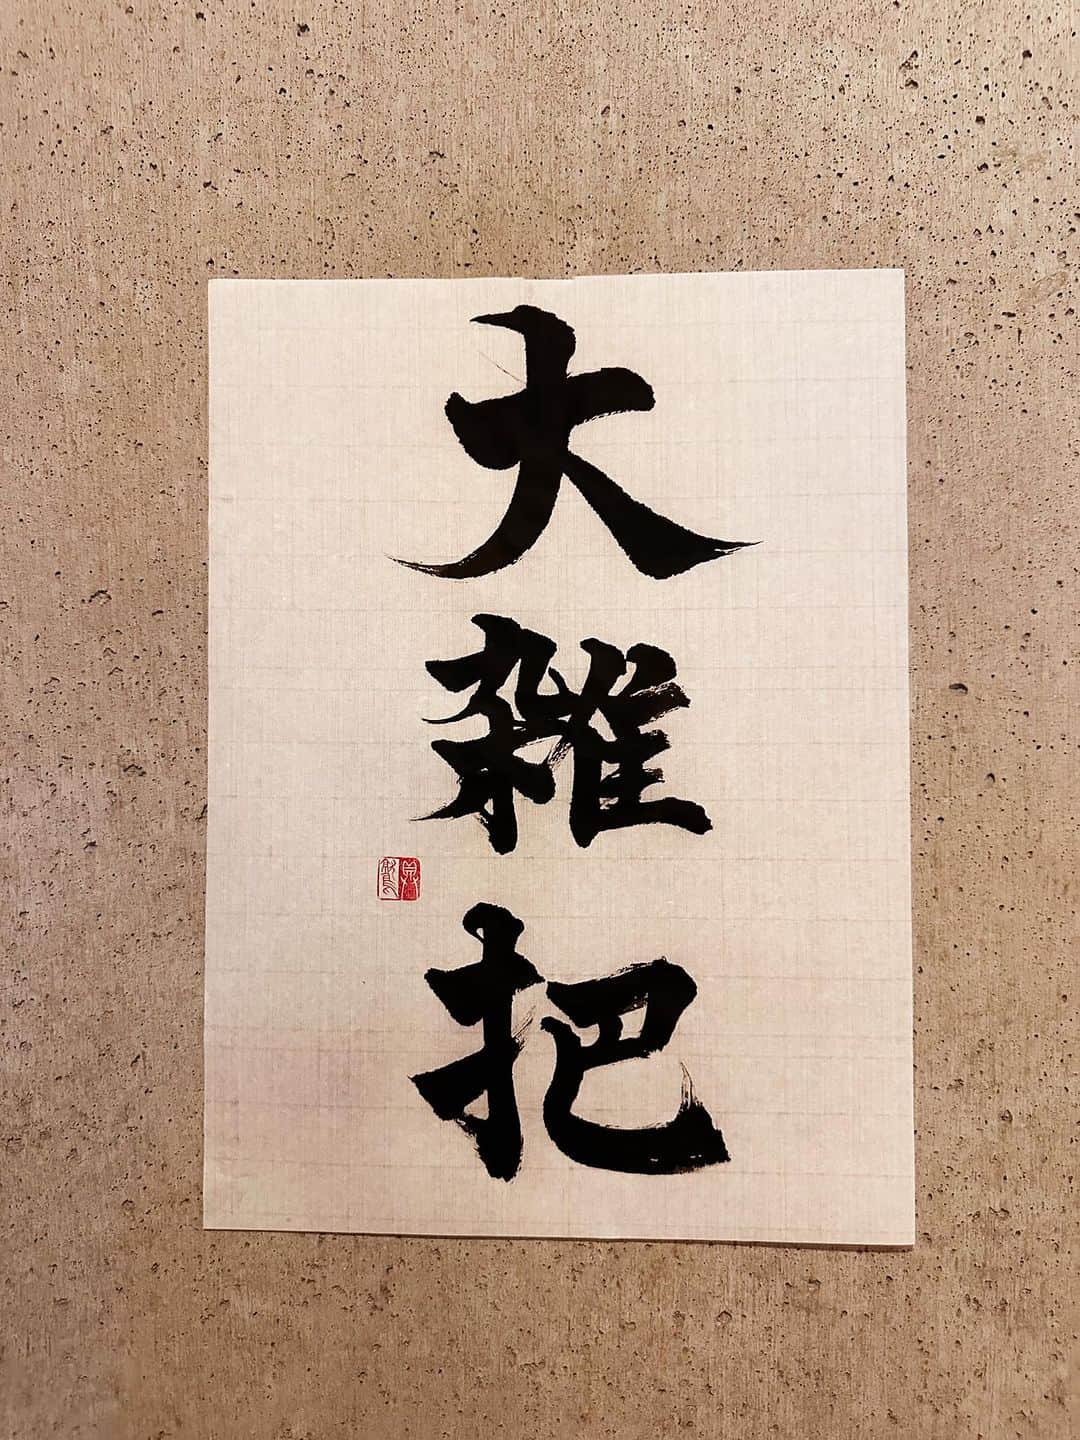 大雑把